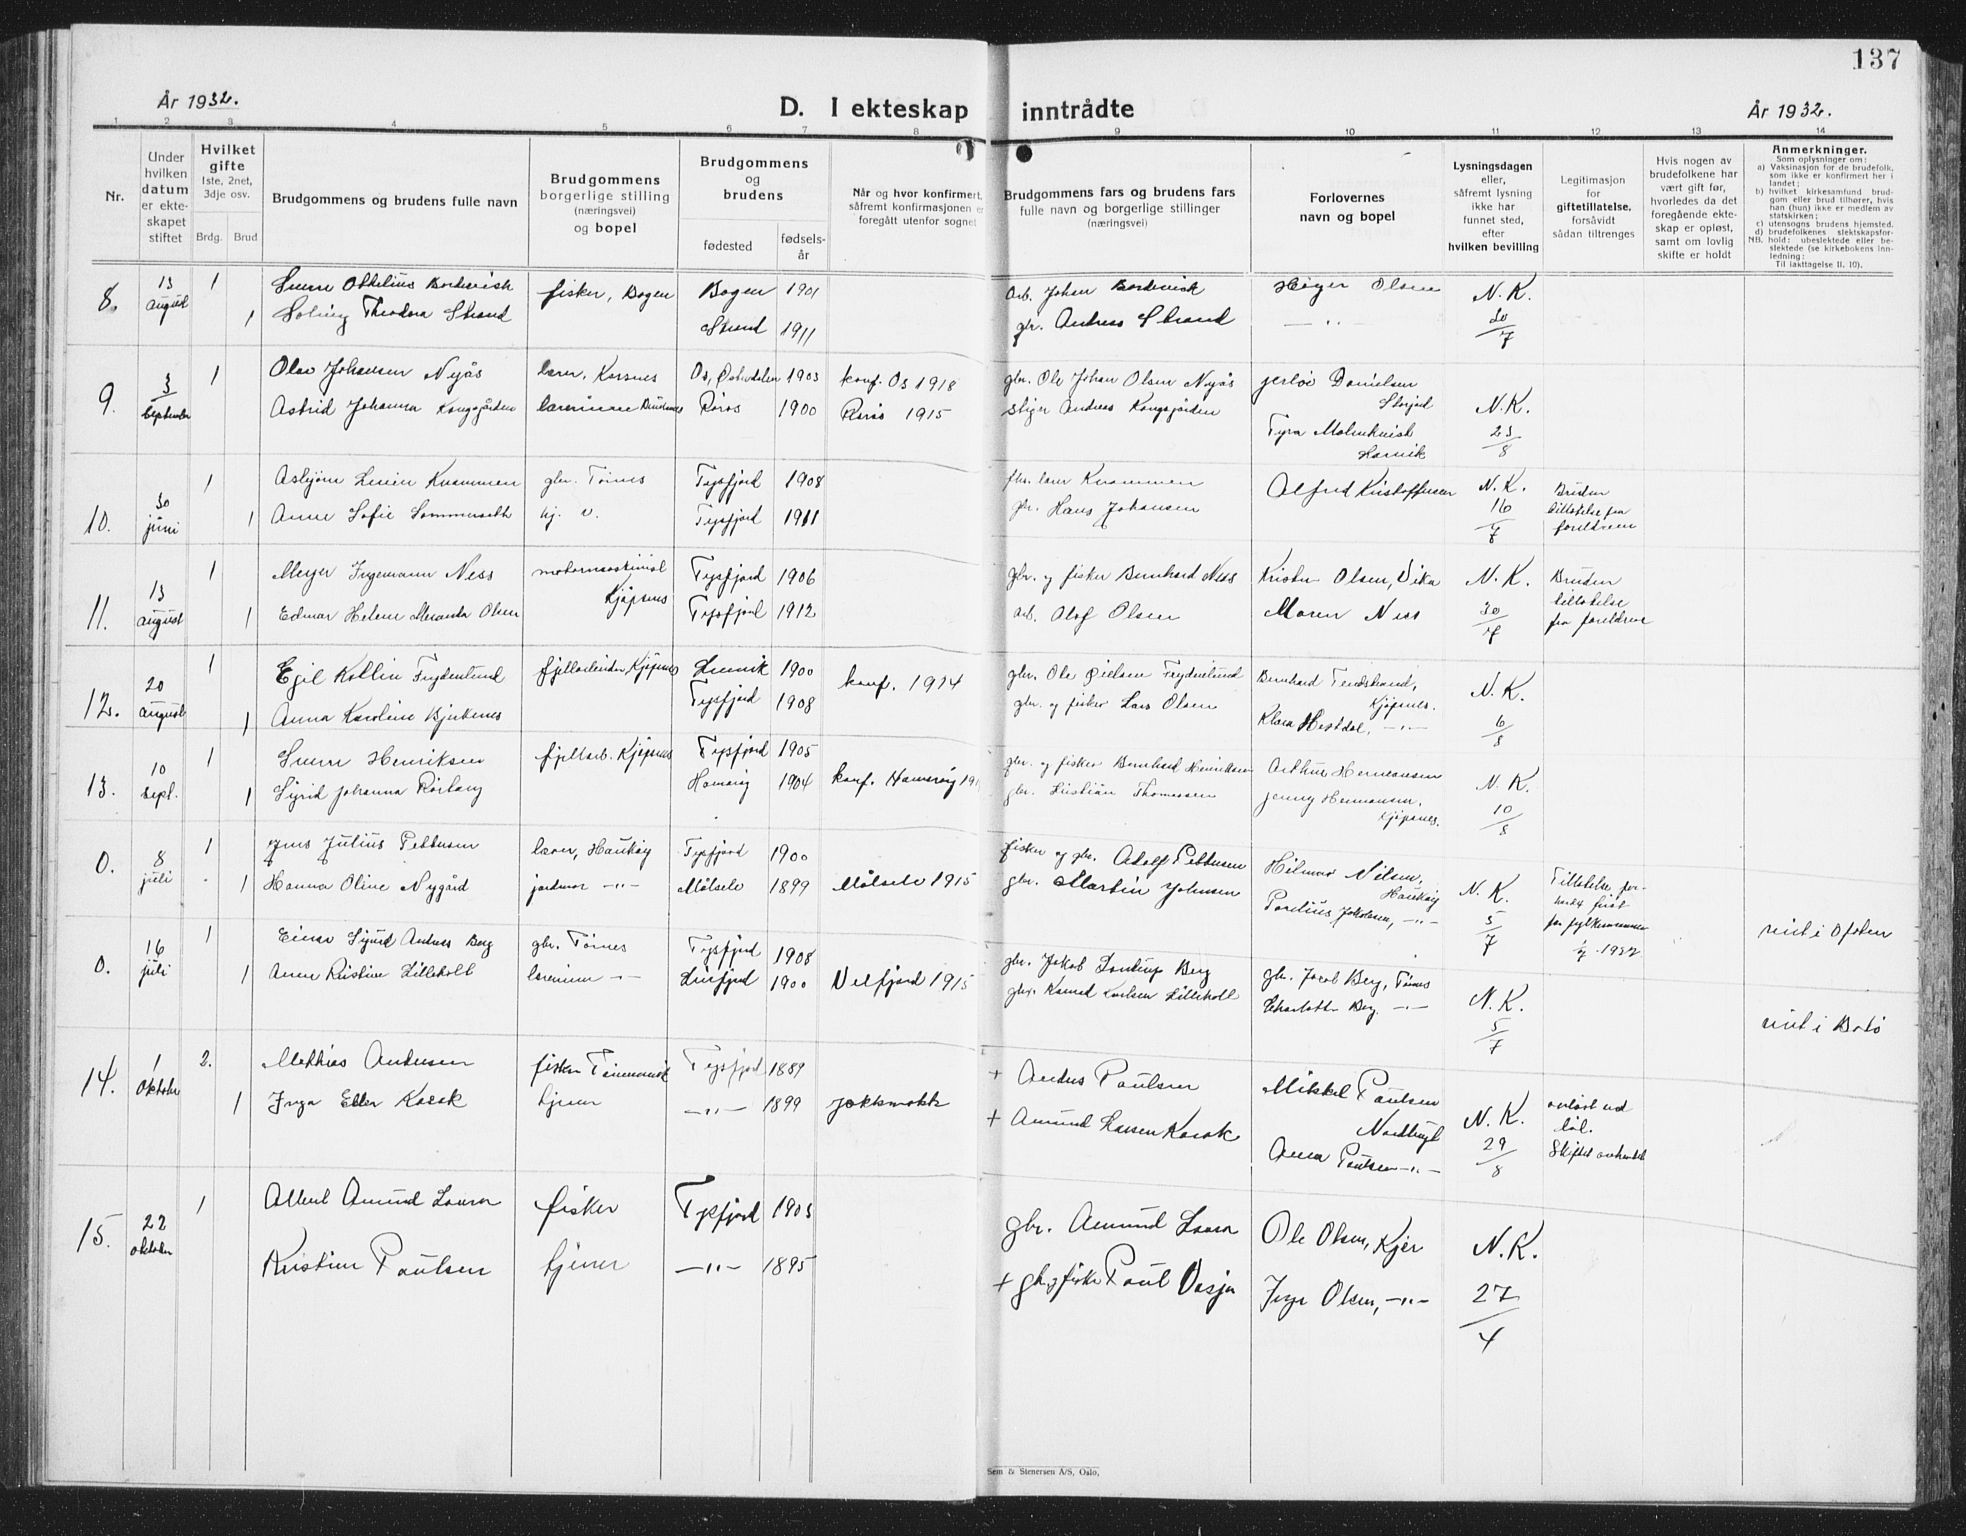 137
År 1932.
D. I ekteskap inntrådte
År 1932.
1 2 3 4 5 6 7 8 9 10 11 12 13 14
Nr.
Under hvilken datum er ekteskapet stiftet
Hvilket gifte
1ste, 2net, 3dje osv.
Brdg. Brud
Brudgommens og brudens fulle navn
Brudgommens borgerlige stilling (næringsvei) og bopel
Brudgommens og brudens
fødested
fødselsår
Når og hvor konfirmert, såfremt konfirmasjonen er foregått utenfor sognet
Brudgommens fars og brudens fars fulle navn og borgerlige stillinger (næringsvei)
Forlovernes navn og bopel
Lysningsdagen eller, såfremt lysning ikke har funnet sted, efter hvilken bevilling
Legitimasjon for giftetillatelse, forsåvidt sådan tiltrenges
Hvis nogen av brudefolkene har vært gift før, hvorledes da det foregående ekteskap er opløst, samt om lovlig skifte er holdt
Anmerkninger.
Som oplysninger om:
a) Vaksinasjon for de brudefolk, som ikke er konfirmert her i landet;
b) hvilket kirkesamfund brudgom eller brud tilhører, hvis han (hun) ikke er medlem av statskirken;
c) utensogns brudens hjemsted.
d) brudefolkenes slektskapsforhold: ubeslektede eller beslektede (se kirkebokens innledning:
NB. Til iakttagelse II. 10).
8. 13 august 1 fisker, Bogen Bogen 1901 arb. Johan N. K.
1 Solveig Theodora Strand Strand 1911 gbr. Andreas Strand — " — 30/7
9. 3 September 1 Olav Johansen Nyås lærer, Korsnes Os, Østerdalen 1903 konf. Os 1918 gbr. Ole Johan Olsen Nyås Danielsen
Astrid Johanna Kongsgården lærerinne Røros 1900 Røros 1915 stiger Andreas Kongsgården N. K. 23/8
10. 30 juni 1 Kvammen gbr. Tømnes Tysfjord 1908 Kvammen Alfred Kristoffersen N. K. 16/7 Bruden tillatelse fra foreldrene
1 Anne Sofie Sommerseth hj. v. Tysfjord 1911 gbr. Hans Johansen
11. 13 august 1 Meyer Ingemann Ness Kjøpsnes Tysfjord 1906 gbr. og fisker Bernhard Ness Olsen, Vika N. K. 30/7 Bruden tillatelse fra foreldrene
1 Edmar Helene Olsen Tysfjord 1912 arb. Olof Olsen Maren Ness
12. 20 august 1 Egil Kollin Frydenlund fjellarbeider, Kjøpsnes 1900 konf. 1914 gbr. Ole Frydenlund Bernhard Kjøpsnes. N. K. 6/8
1 Anna Karoline Bjerkenes Tysfjord 1908 gbr. og fisker Lars Olsen Klara Hestdal, — " —
13. 10 sept. 1 Henriksen fjellarb. Kjøpsnes Tysfjord 1905 gbr. og fisker Bernhard Henriksen Arthur Hermansen N. K. 10/8
1 Sigrid Johanna Rørtang Hamarøy 1904 konf. Hamarøy gbr. Kristian Thomassen Jenny Hermansen, Kjøpsnes.
0. 8 juli 1 Jens Julius Pettersen lærer, Haukøy Tysfjord 1900 fisker og gbr. Adolf Pettersen Hilmar Nilsen, Haukøy N. K. 5/7
1 Hanna Oline Nygård jordmor — " — Målselv 1899 Målselv 1915 gbr. Martin Johnsen Parelius Jakobsen, — " — viet i Ofoten
0. 16 juli 1 Einar Sigurd Andreas Berg gbr. Tømnes Tysfjord 1908 gbr. Jakob Berg gbr. Jacob Berg, Tømnes N. K. 5/7 viet i Bodø
1 Anna Kristine Lilleholt lærerinne — " — 1900 Velfjord 1915 gbr. Konrad Karlsen Lilleholt Charlotte Berg — " —
14. 1 Oktober 2. Mathias Andersen fisker Tysfjord 1889 + Anders Paulsen Mikkel Paulsen N. K. 29/8
1 Inga Ellen Kosok tjener — " — 1899 Jokkmokk + Amund Larsen Kosok Anna Paulsen — " —
15. 22 oktober 1 Albert Amund fisker Tysfjord 1903 gbr. Amund Ole Olsen, Kjær N. K. 27/4
Kristine Paulsen tjener — " — 1895 + gbr. og fisker Paul Vasja Inga Olsen, — " —
Sem & Stenersen A/S, Oslo.